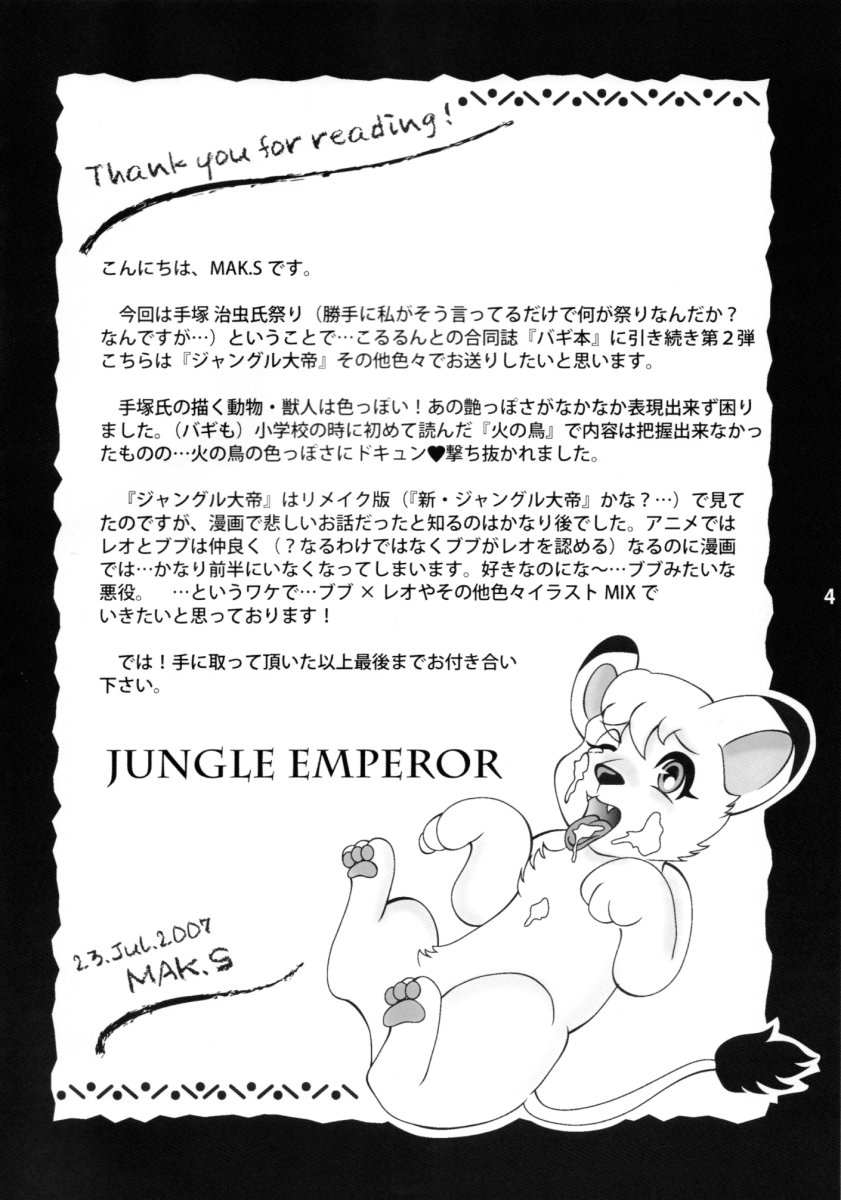 Thank you for reading!
こんにちは、MAK.S です。
今回は手塚 治虫氏祭り（勝手に私がそう言ってるだけで何が祭りなんだか？
なんですが…）ということで…こるるんとの合同誌『バギ本』に引き続き第２弾
こちらは『ジャングル大帝』その他色々でお送りしたいと思います。
手塚氏の描く動物・獣人は色っぽい！あの艶っぽさがなかなか表現出来ず困り
ました。（バギも）小学校の時に初めて読んだ『火の鳥』で内容は把握出来なかっ
たものの…火の鳥の色っぽさにドキュン♥撃ち抜かれました。
『ジャングル大帝』はリメイク版（『新・ジャングル大帝』かな？…）で見て
てたのですが、漫画で悲しいお話だったと知るのはかなり後でした。アニメでは
レオとブブは仲良く（？なるわけではなくブブがレオを認める）なるのに漫画
では…かなり前半にいなくなってしまいます。好きなのにな～…ブブみたいな
悪役。　…というワケで…ブブ × レオやその他色々イラスト MIX で
いきたいと思っております！
では！手に取って頂いた以上最後までお付き合い
下さい。
4
JUNGLE EMPEROR
23.Jul.2007
MAK.S